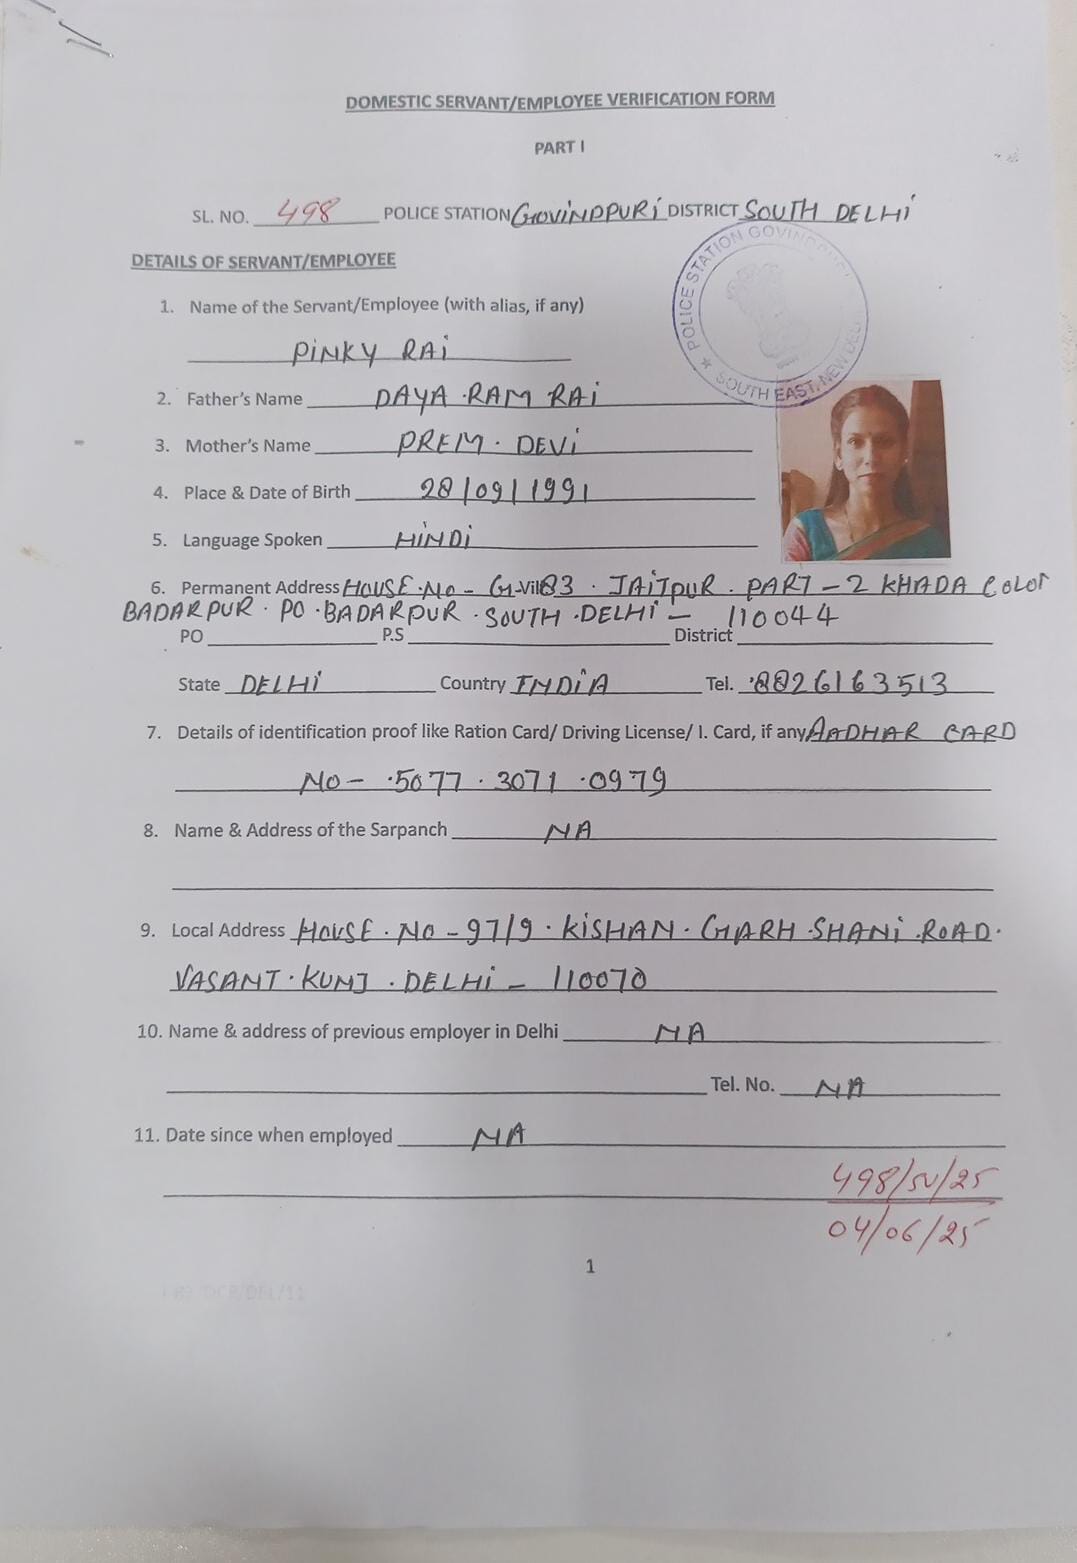 DOMESTIC SERVANT/EMPLOYEE VERIFICATION FORM
PART I
SL. NO. 498 POLICE STATION GOVINDPURI DISTRICT SOUTH DELHI
POLICE STATION GOVINDPURI
SOUTH EAST, NEW DELHI
DETAILS OF SERVANT/EMPLOYEE
1. Name of the Servant/Employee (with alias, if any)
PINKY RAI
2. Father's Name DAYA RAM RAI
3. Mother's Name PREM DEVI
4. Place & Date of Birth 28/09/1991
5. Language Spoken HINDI
6. Permanent Address HOUSE NO - G-Vill83 JAITPUR PART-2 KHADA COLOY
BADARPUR PO BADARPUR SOUTH DELHI - 110044
PO P.S District
State DELHI Country INDIA Tel. 8826163513
7. Details of identification proof like Ration Card/ Driving License/ I. Card, if any AADHAR CARD
NO - 5077 3071 0979
8. Name & Address of the Sarpanch NA
9. Local Address HOUSE NO - 97/9 KISHAN GARH SHANI ROAD
VASANT KUNJ DELHI - 110070
10. Name & address of previous employer in Delhi NA
Tel. No. NA
11. Date since when employed NA
498/SV/25
04/06/25
1